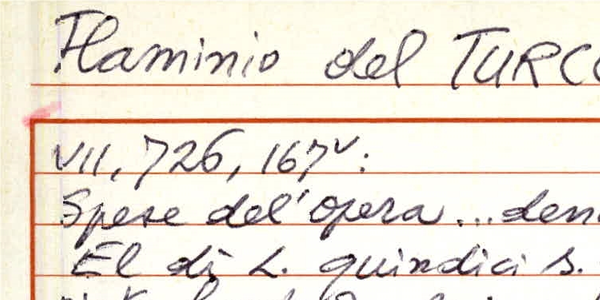 Flaminio del TURCO
VII, 726, 167v:
Spese del'opera...den
El dì L. quindici s.